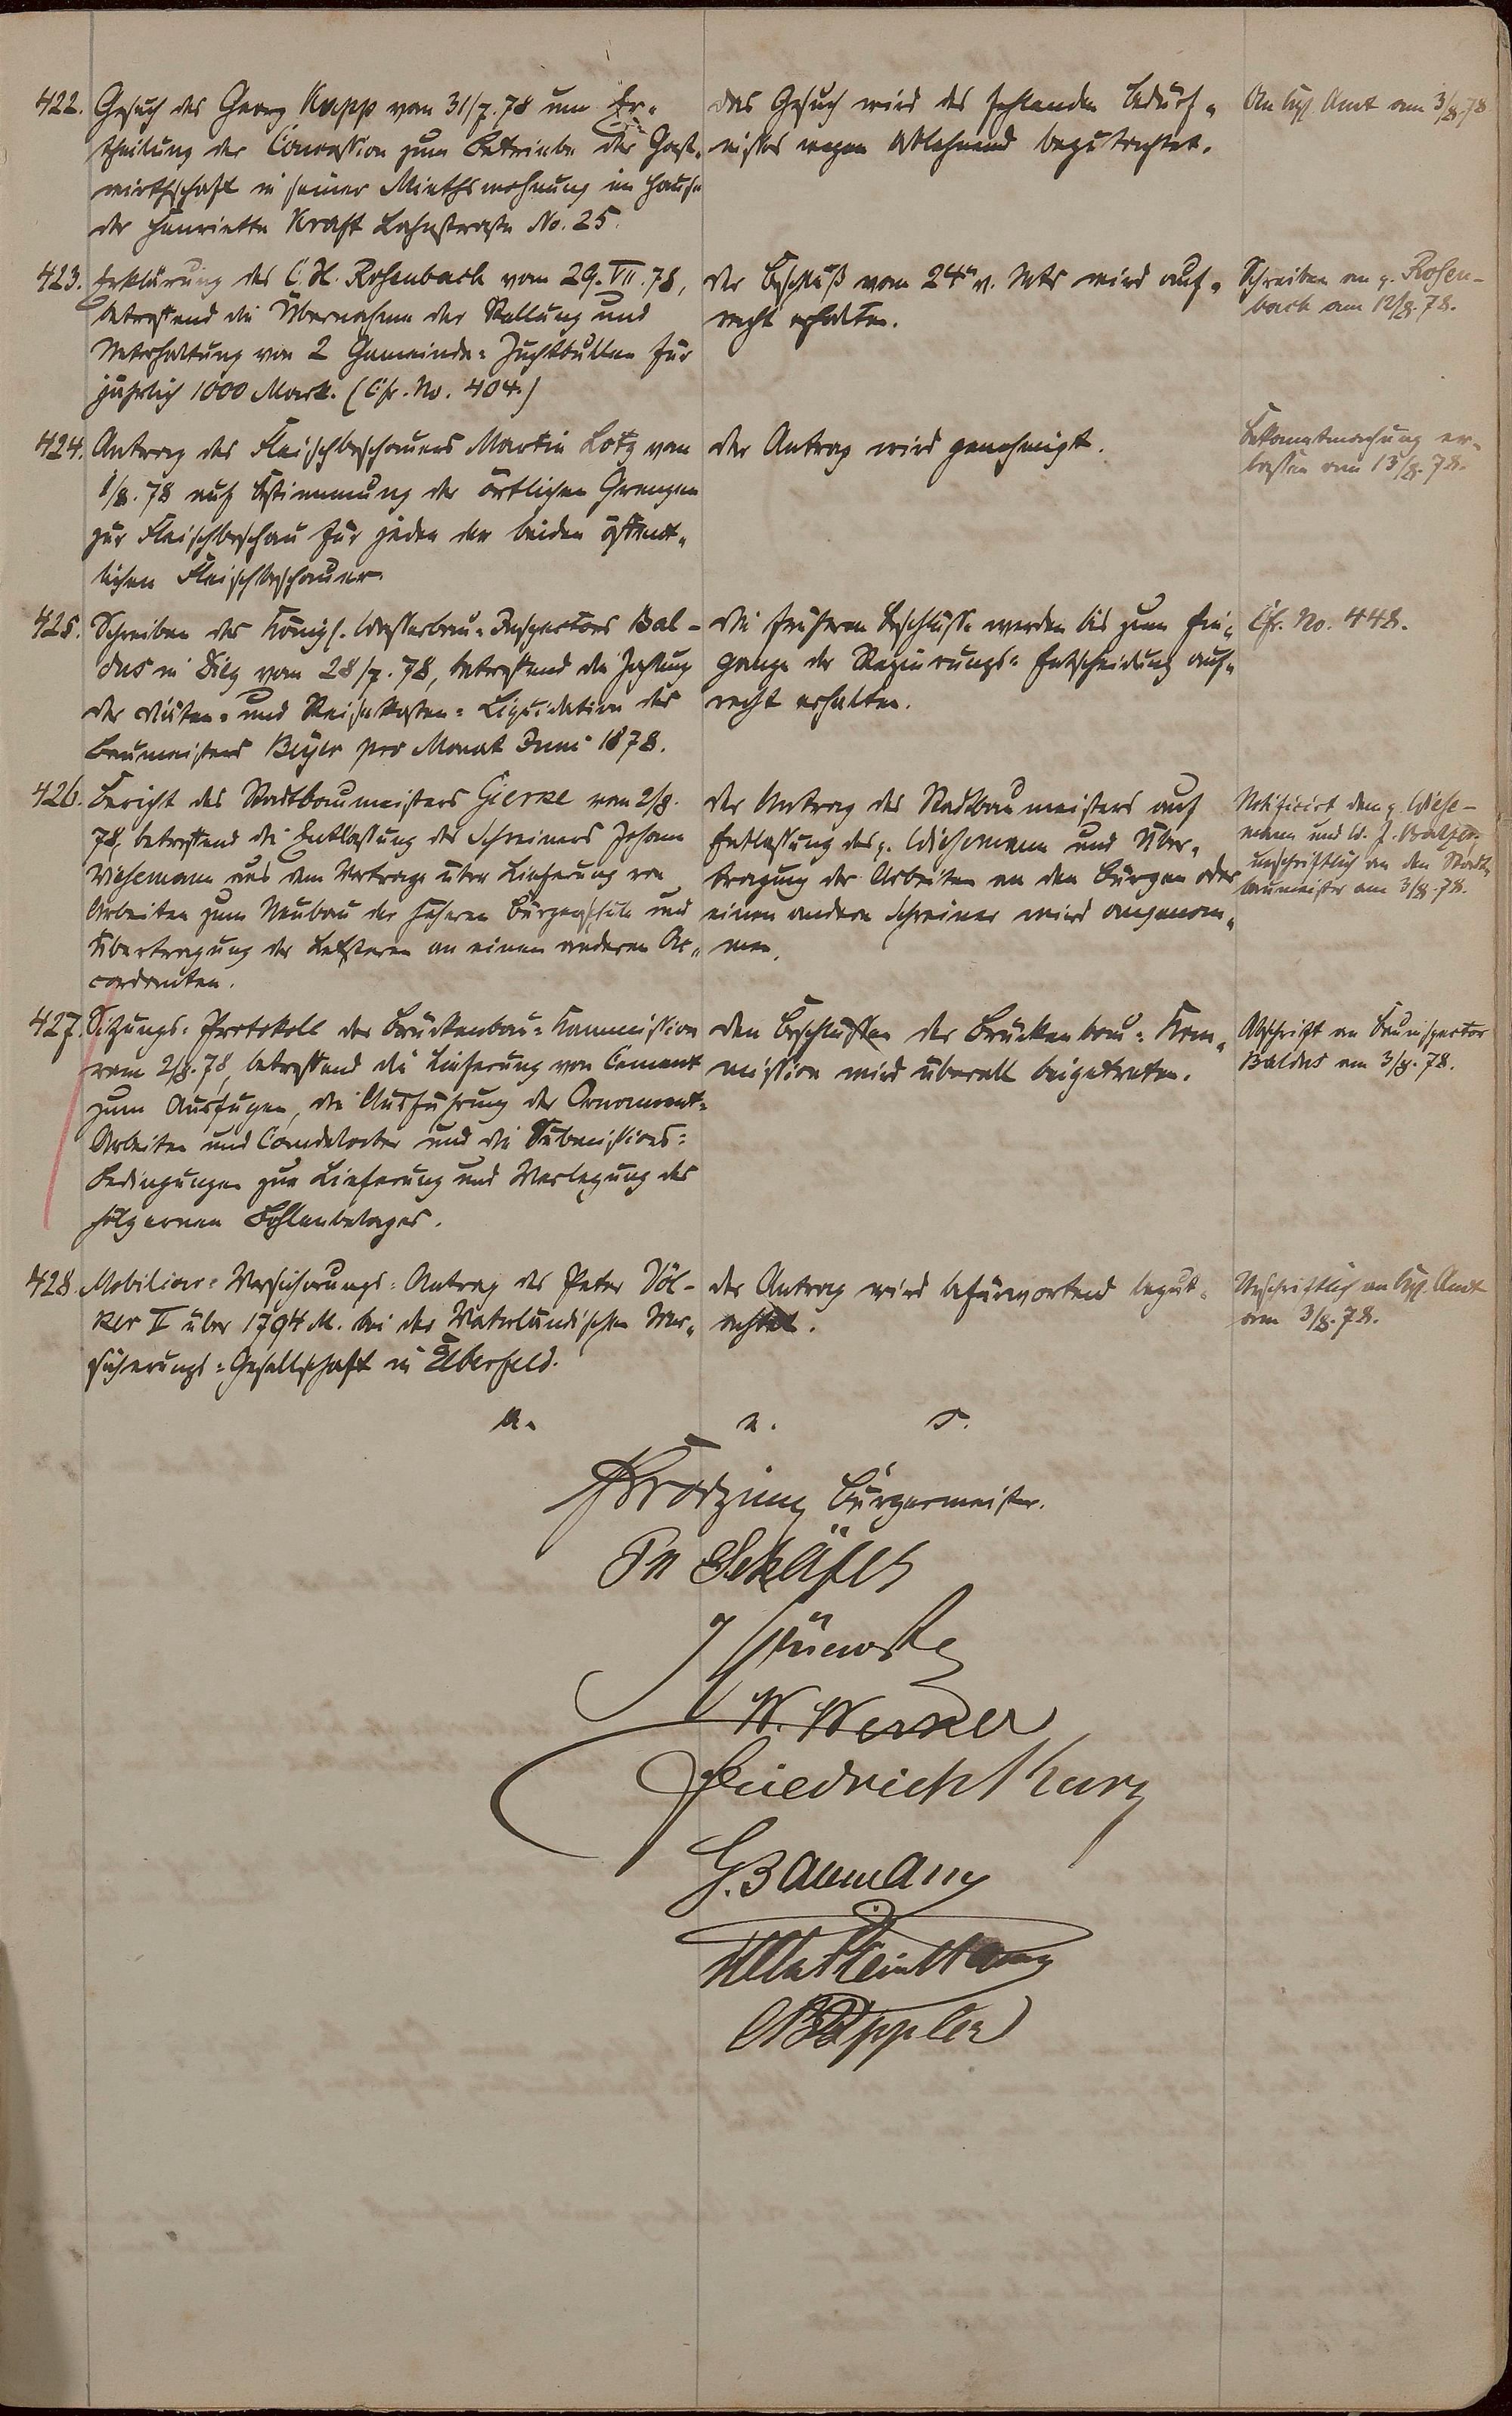 422. Gesuch des Georg Kopp vom 31/7. 78 um Er-
theilung der Concession zum Betriebe der Gast-
wirthschaft in seiner Miethswohnung im Hause
der Henriette Kraft Bahnstraße No. 25.
das Gesuch wird des fehlenden Bedürf-
nisses wegen ablehnend begutachtet.
An Kgl. Amt am 3/8. 78
423. Erklärung des C. H. Rosenbach vom 29. VII. 78,
betreffend die Übernahme der Stellung und
Unterhaltung von 2 Gemeinde-Zuchtbullen für
jährlich 1000 Mark. (Cfr. No. 404.)
der Beschluß vom 24n v. Mts wird auf-
recht erhalten.
Schreiben an p. Rosen-
bach am 12/8. 78.
424. Antrag des Fleischbeschauers Martin Lotz vom
1/8. 78 auf Bestimmung der örtlichen Grenzen
zur Fleischbeschau für jeden der beiden öffent-
lichen Fleischbeschauer.
der Antrag wird genehmigt.
Bekanntmachung er-
lassen am 13/8. 78.
425. Schreiben des Königl. Wasserbau-Inspectors Bal-
dus in Diez vom 28/7. 78, betreffend die Zahlung
der Diäten- und Reisekosten-Liquidation des
Baumeisters Beyer pro Monat Juni 1878.
die früheren Beschlüsse werden bis zum Ein-
gange der Regierungs-Entscheidung auf-
recht erhalten.
Cfr. No. 448.
426. Bericht des Stadtbaumeisters Gierke vom 2/8.
78, betreffend die Entlassung des Schreiners Johann
Wiesemann aus dem Vertrage über Lieferung von
Arbeiten zum Neubau der höheren Bürgerschule und
Übertragung der Letzteren an einen anderen Ac-
cordanten.
der Antrag des Stadtbaumeisters auf
Entlassung des p. Wiesemann und Über-
tragung der Arbeiten an den Bürgen oder
einen andern Schreiner wird angenom-
men.
Notificirt dem p. Wiese-
mann und W. J. Balzer,
urschriftlich an den Stadt-
baumeister am 3/8. 78.
427. Sitzungs-Protokoll der Brückenbau-Kommission
vom 2/8. 78, betreffend die Lieferung von Cement
zum Ausfugen, die Ausführung der Ornament-
Arbeiten und Candelaber und die Submissions-
Bedingungen zur Lieferung und Verlegung des
hölzernen Bohlenbelages.
den Beschlüssen der Brückenbau-Kom-
mission wird überall beigetreten.
Abschrift an Bauinspector
Baldus am 3/8. 78.
428. Mobiliar-Versicherungs-Antrag des Peter Völ-
ker II über 1794 M. bei der Vaterländischen Ver-
sicherungs-Gesellschaft in Elberfeld.
der Antrag wird befürwortend begut-
achtet.
Urschriftlich an Kgl. Amt
am 3/8. 78.
a. u. s.
Bürgermeister.
Schäfer
W. Werner
Friedrich Kurz
G. Baumann